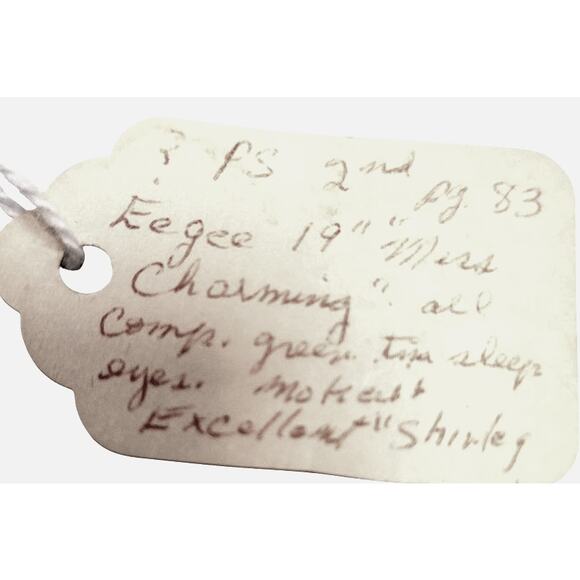 ? PS 2nd
pg. 83
Eegee 19" "Miss
Charming". all
comp. green tin sleep
eyes. Mohair
Excellent "Shirley